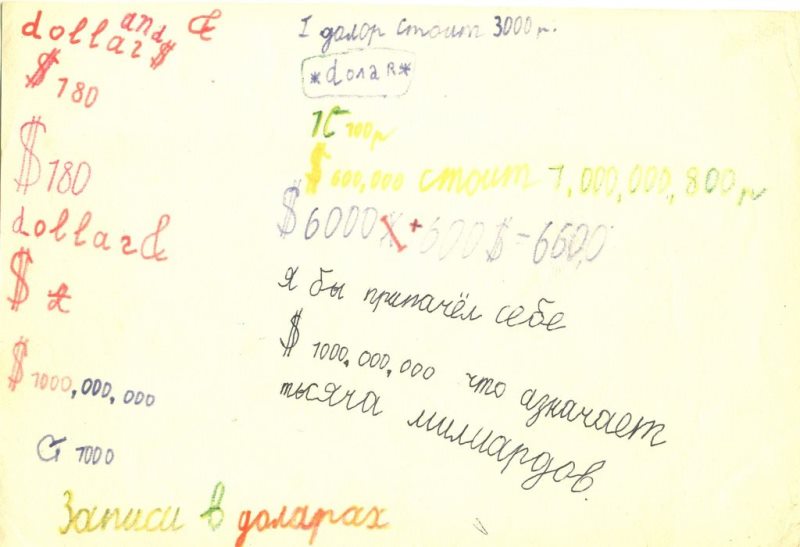 dollar and $ £
$ 180
$ 180
dollar £
$ £
$ 1000,000,000
1000
1 долор стоит 3000 р.
*dолаR*
100 р
$ 600,000 стоит 1,000,000,800 р
$ 6000 + 600 $ = 6600
я бы припачёл себе
$ 1000,000,000 что азначает
тысяча милиардов.
Записи в доларах